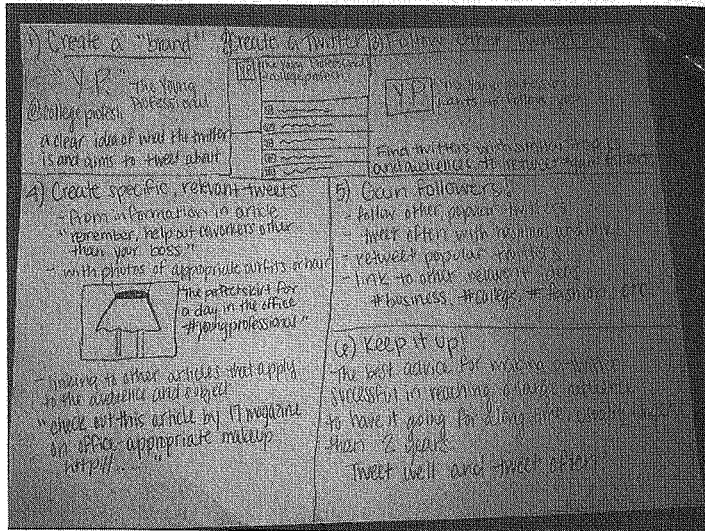 1) Create a "brand"
"Y.P." The Young
Professional
@college profesh
a clear idea of what the twitter
is and aims to tweet about
2) Create a Twitter
YP The Young Professional
@college profesh
3) Follow Other Twitters
YP "The Young Professional
wants to follow you"
Find twitters with similar
and audiences, to retweet your
4) Create specific, relevant tweets
- from information in article
"remember, help out coworkers other
than your boss"
- with photos of appropriate outfits or hair
"The perfect skirt for
a day in the office
#youngprofessional"
- linking to other articles that apply
to the audience and subject
"check out this article by 17 magazine
on office-appropriate makeup
http//...."
5) Gain Followers!
- follow other popular twitters
- tweet often with
- retweet popular twitters
- link to other relevant ideas
#business, #college, #fashion, etc
6) Keep it up!
- The best advice for making a twitter
successful in reaching a large audience
to have it going for a long time, usually more
than 2 years
Tweet well and tweet often!